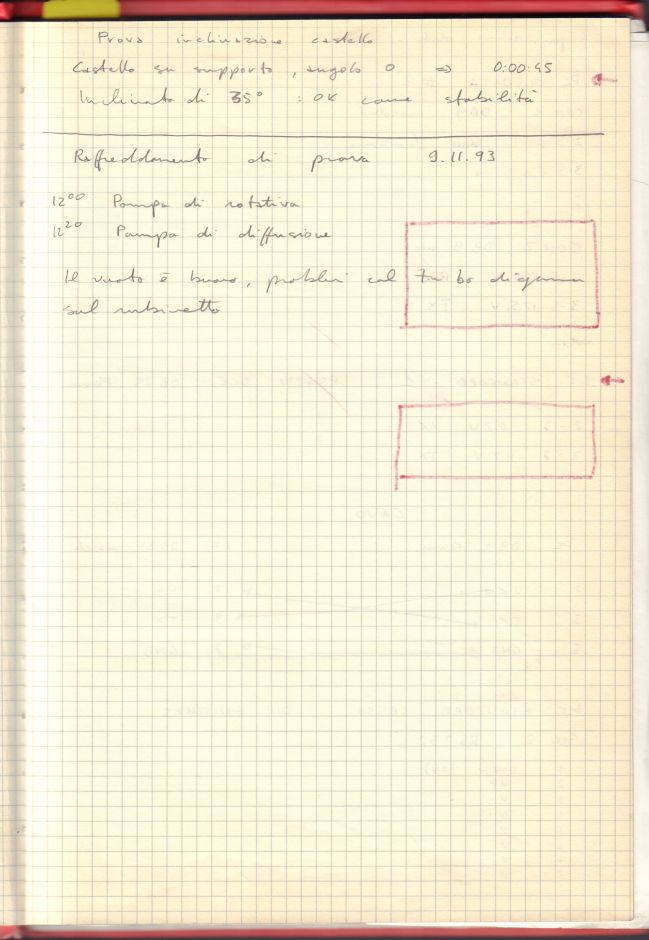 Prova inclinazione castello
Castello su supporto, angolo 0 => 0:00:45
Inclinato di 35° : OK come stabilità
Raffreddamento di prova 9.11.93
12⁰⁰ Pompa di rotativa
12²⁰ Pompa di diffusione
Il vuoto è buono, problemi col tubo
sul rubinetto